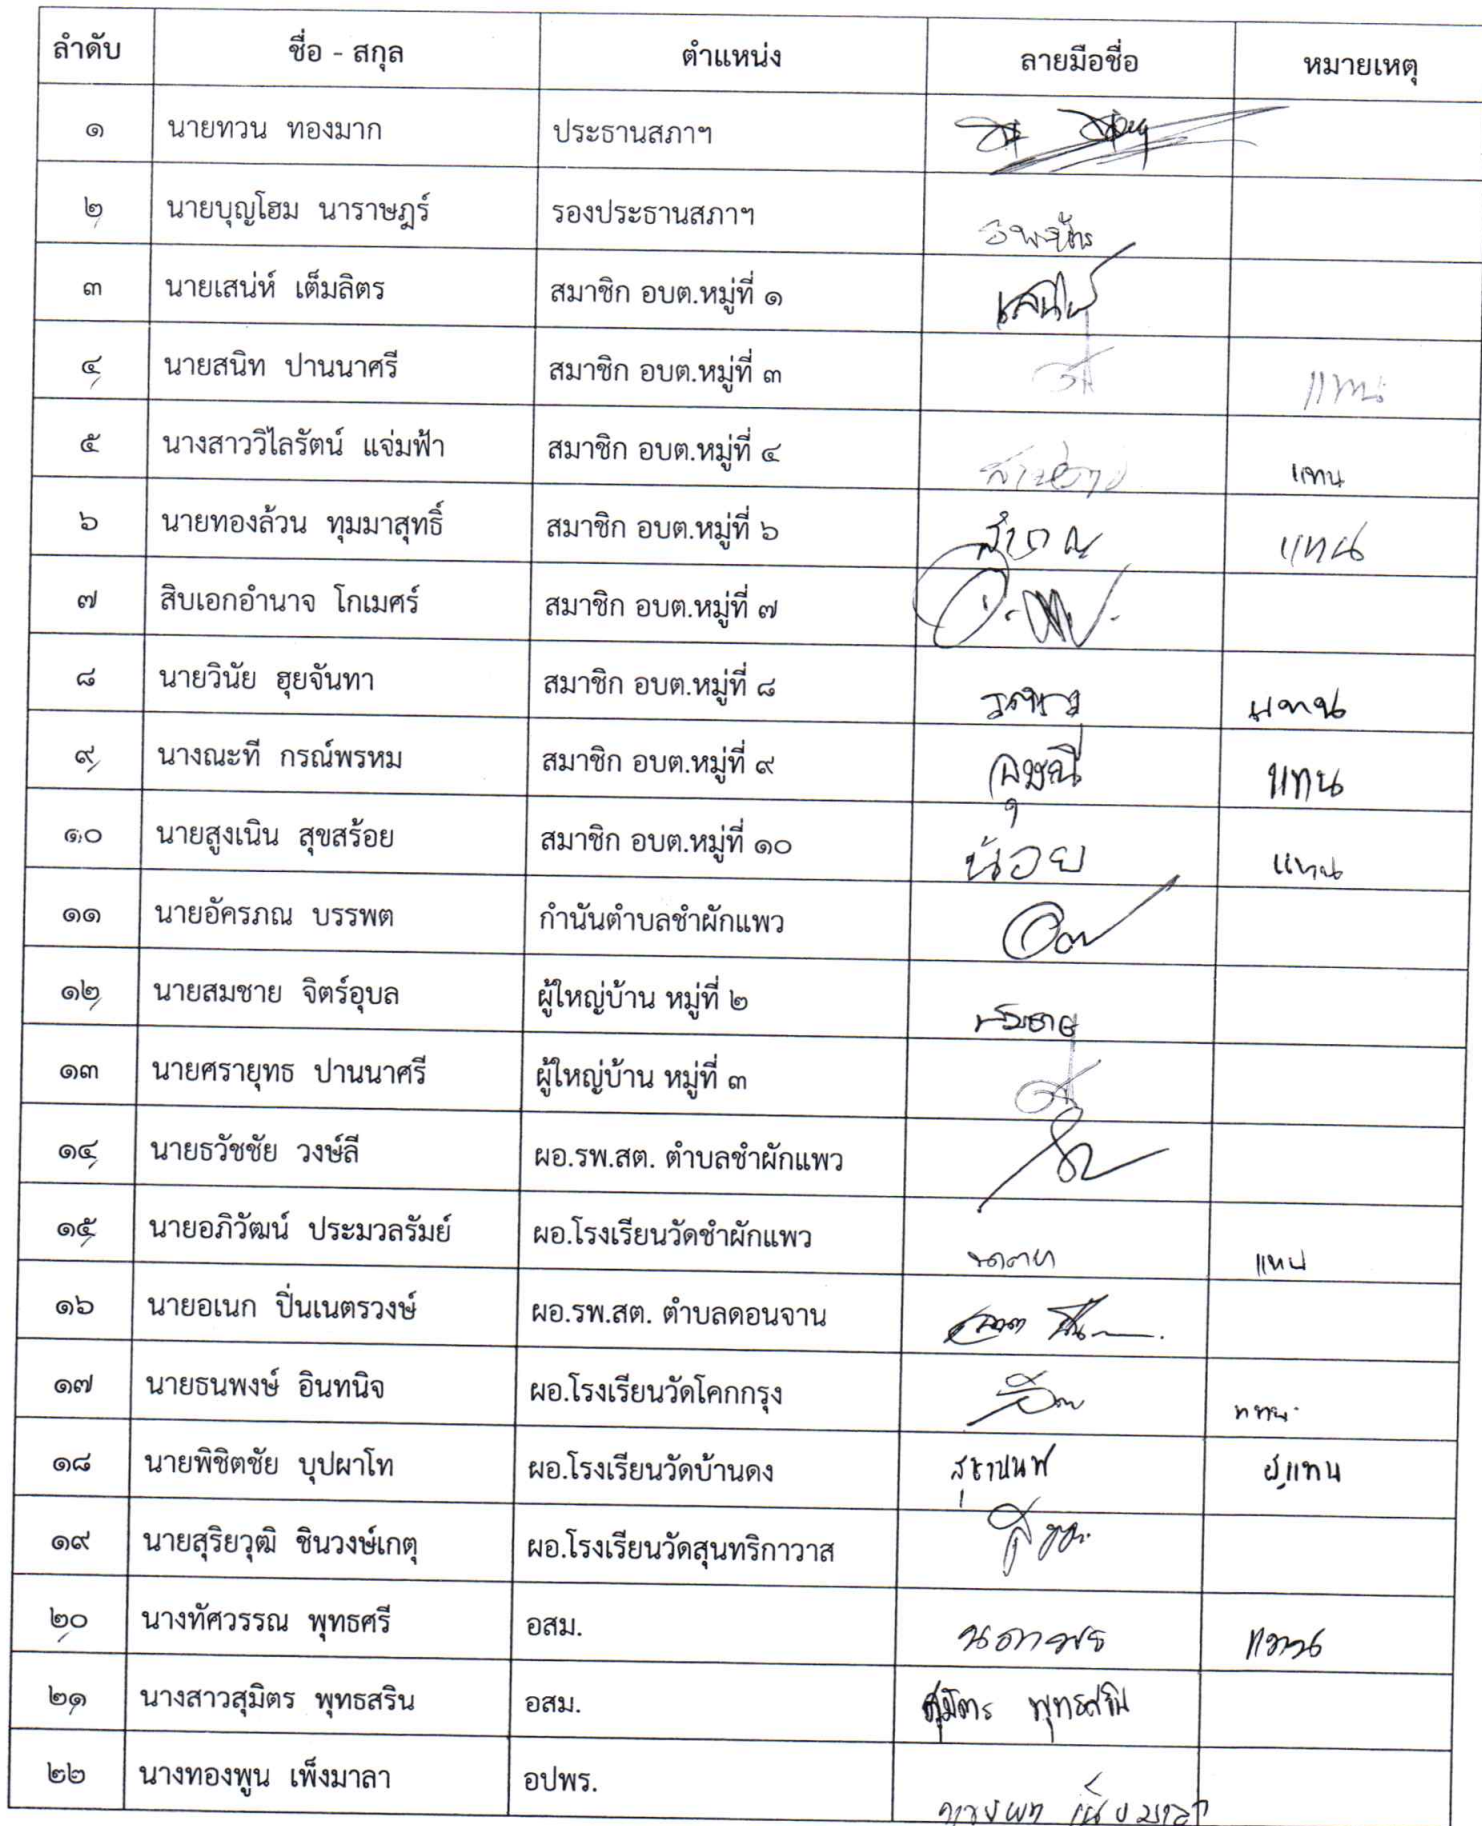 ลำดับ ชื่อ - สกุล ตำแหน่ง ลายมือชื่อ หมายเหตุ
๑ นายทวน ทองมาก ประธานสภาฯ
๒ นายบุญโฮม นาราษฎร์ รองประธานสภาฯ
๓ นายเสน่ห์ เต็มลิตร สมาชิก อบต.หมู่ที่ ๑ เสน่ห์
๔ นายสนิท ปานนาศรี สมาชิก อบต.หมู่ที่ ๓ แทน
๕ นางสาววิไลรัตน์ แจ่มฟ้า สมาชิก อบต.หมู่ที่ ๔ แทน
๖ นายทองล้วน ทุมมาสุทธิ์ สมาชิก อบต.หมู่ที่ ๖ แทน
๗ สิบเอกอำนาจ โกเมศร์ สมาชิก อบต.หมู่ที่ ๗
๘ นายวินัย ฮุยจันทา สมาชิก อบต.หมู่ที่ ๘ แทน
๙ นางณะที กรณ์พรหม สมาชิก อบต.หมู่ที่ ๙ แทน
๑๐ นายสูงเนิน สุขสร้อย สมาชิก อบต.หมู่ที่ ๑๐ น้อย แทน
๑๑ นายอัครภณ บรรพต กำนันตำบลชำผักแพว
๑๒ นายสมชาย จิตร์อุบล ผู้ใหญ่บ้าน หมู่ที่ ๒ สมชาย
๑๓ นายศรายุทธ ปานนาศรี ผู้ใหญ่บ้าน หมู่ที่ ๓
๑๔ นายธวัชชัย วงษ์ลี ผอ.รพ.สต. ตำบลชำผักแพว
๑๕ นายอภิวัฒน์ ประมวลรัมย์ ผอ.โรงเรียนวัดชำผักแพว แทน
๑๖ นายอเนก ปิ่นเนตรวงษ์ ผอ.รพ.สต. ตำบลดอนจาน
๑๗ นายธนพงษ์ อินทนิจ ผอ.โรงเรียนวัดโคกกรุง แทน
๑๘ นายพิชิตชัย บุปผาโท ผอ.โรงเรียนวัดบ้านดง ผู้แทน
๑๙ นายสุริยวุฒิ ชินวงษ์เกตุ ผอ.โรงเรียนวัดสุนทริกาวาส
๒๐ นางทัศวรรณ พุทธศรี อสม. แทน
๒๑ นางสาวสุมิตร พุทธสริน อสม. สุมิตร พุทธสริน
๒๒ นางทองพูน เพ็งมาลา อปพร.